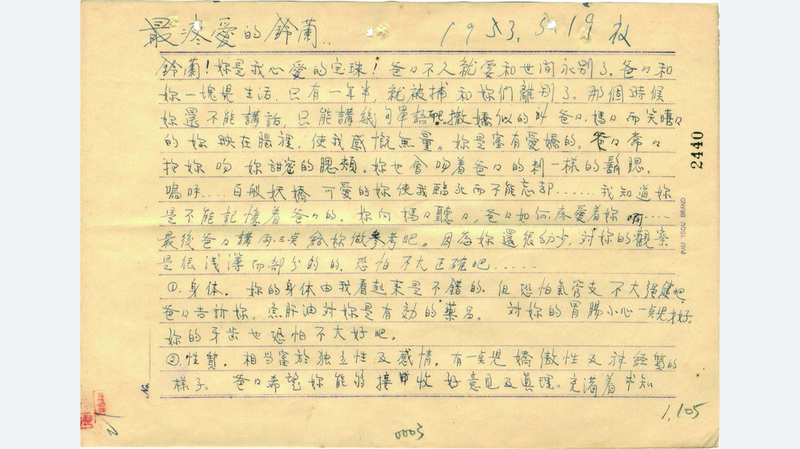 最疼愛的鈴蘭..
1953.5.19 夜
鈴蘭!妳是我心愛的宝珠!爸々不久就要和世间永别了.爸々和
妳一塊兒生活.只有一年半,就被捕和妳們離別了.那個時候
妳還不能講話,只能講幾句單語吧.撒嬌似的叫爸々.媽々而笑嘻々
的妳映在腦裡,使我感慨無量。妳是富有愛嬌的.爸々常々
把妳吻 妳甜蜜的腮頰.妳也會吻着爸々的刺一樣的鬍鬚.
嗚呼……百般妖嬌 可愛的妳使我臨死而不能忘却……我知道妳
是不能記憶着爸々的.妳向媽々聽々,爸々如何疼愛着妳啊……
最後爸々講兩三点給妳做參考吧。因為妳還很幼少.対妳的觀察
是很浅薄而部分的的.恐怕不大正確吧……
①.身体.妳的身体由我看起來是不錯的.但恐怕氣管支不大强健吧.
爸々告訴妳,魚肝油対妳是有効的藥品。対妳的胃腸小心一点兒才好.
妳的牙歯也恐怕不大好吧。
②.性質.相当富於独立性及感情。有一点兒嬌傲性及神経質的
様子。爸々希望妳能够接收好意見及真理。充滿着求知
2440
PAI TSOU BRAND
No.
1.105
0003